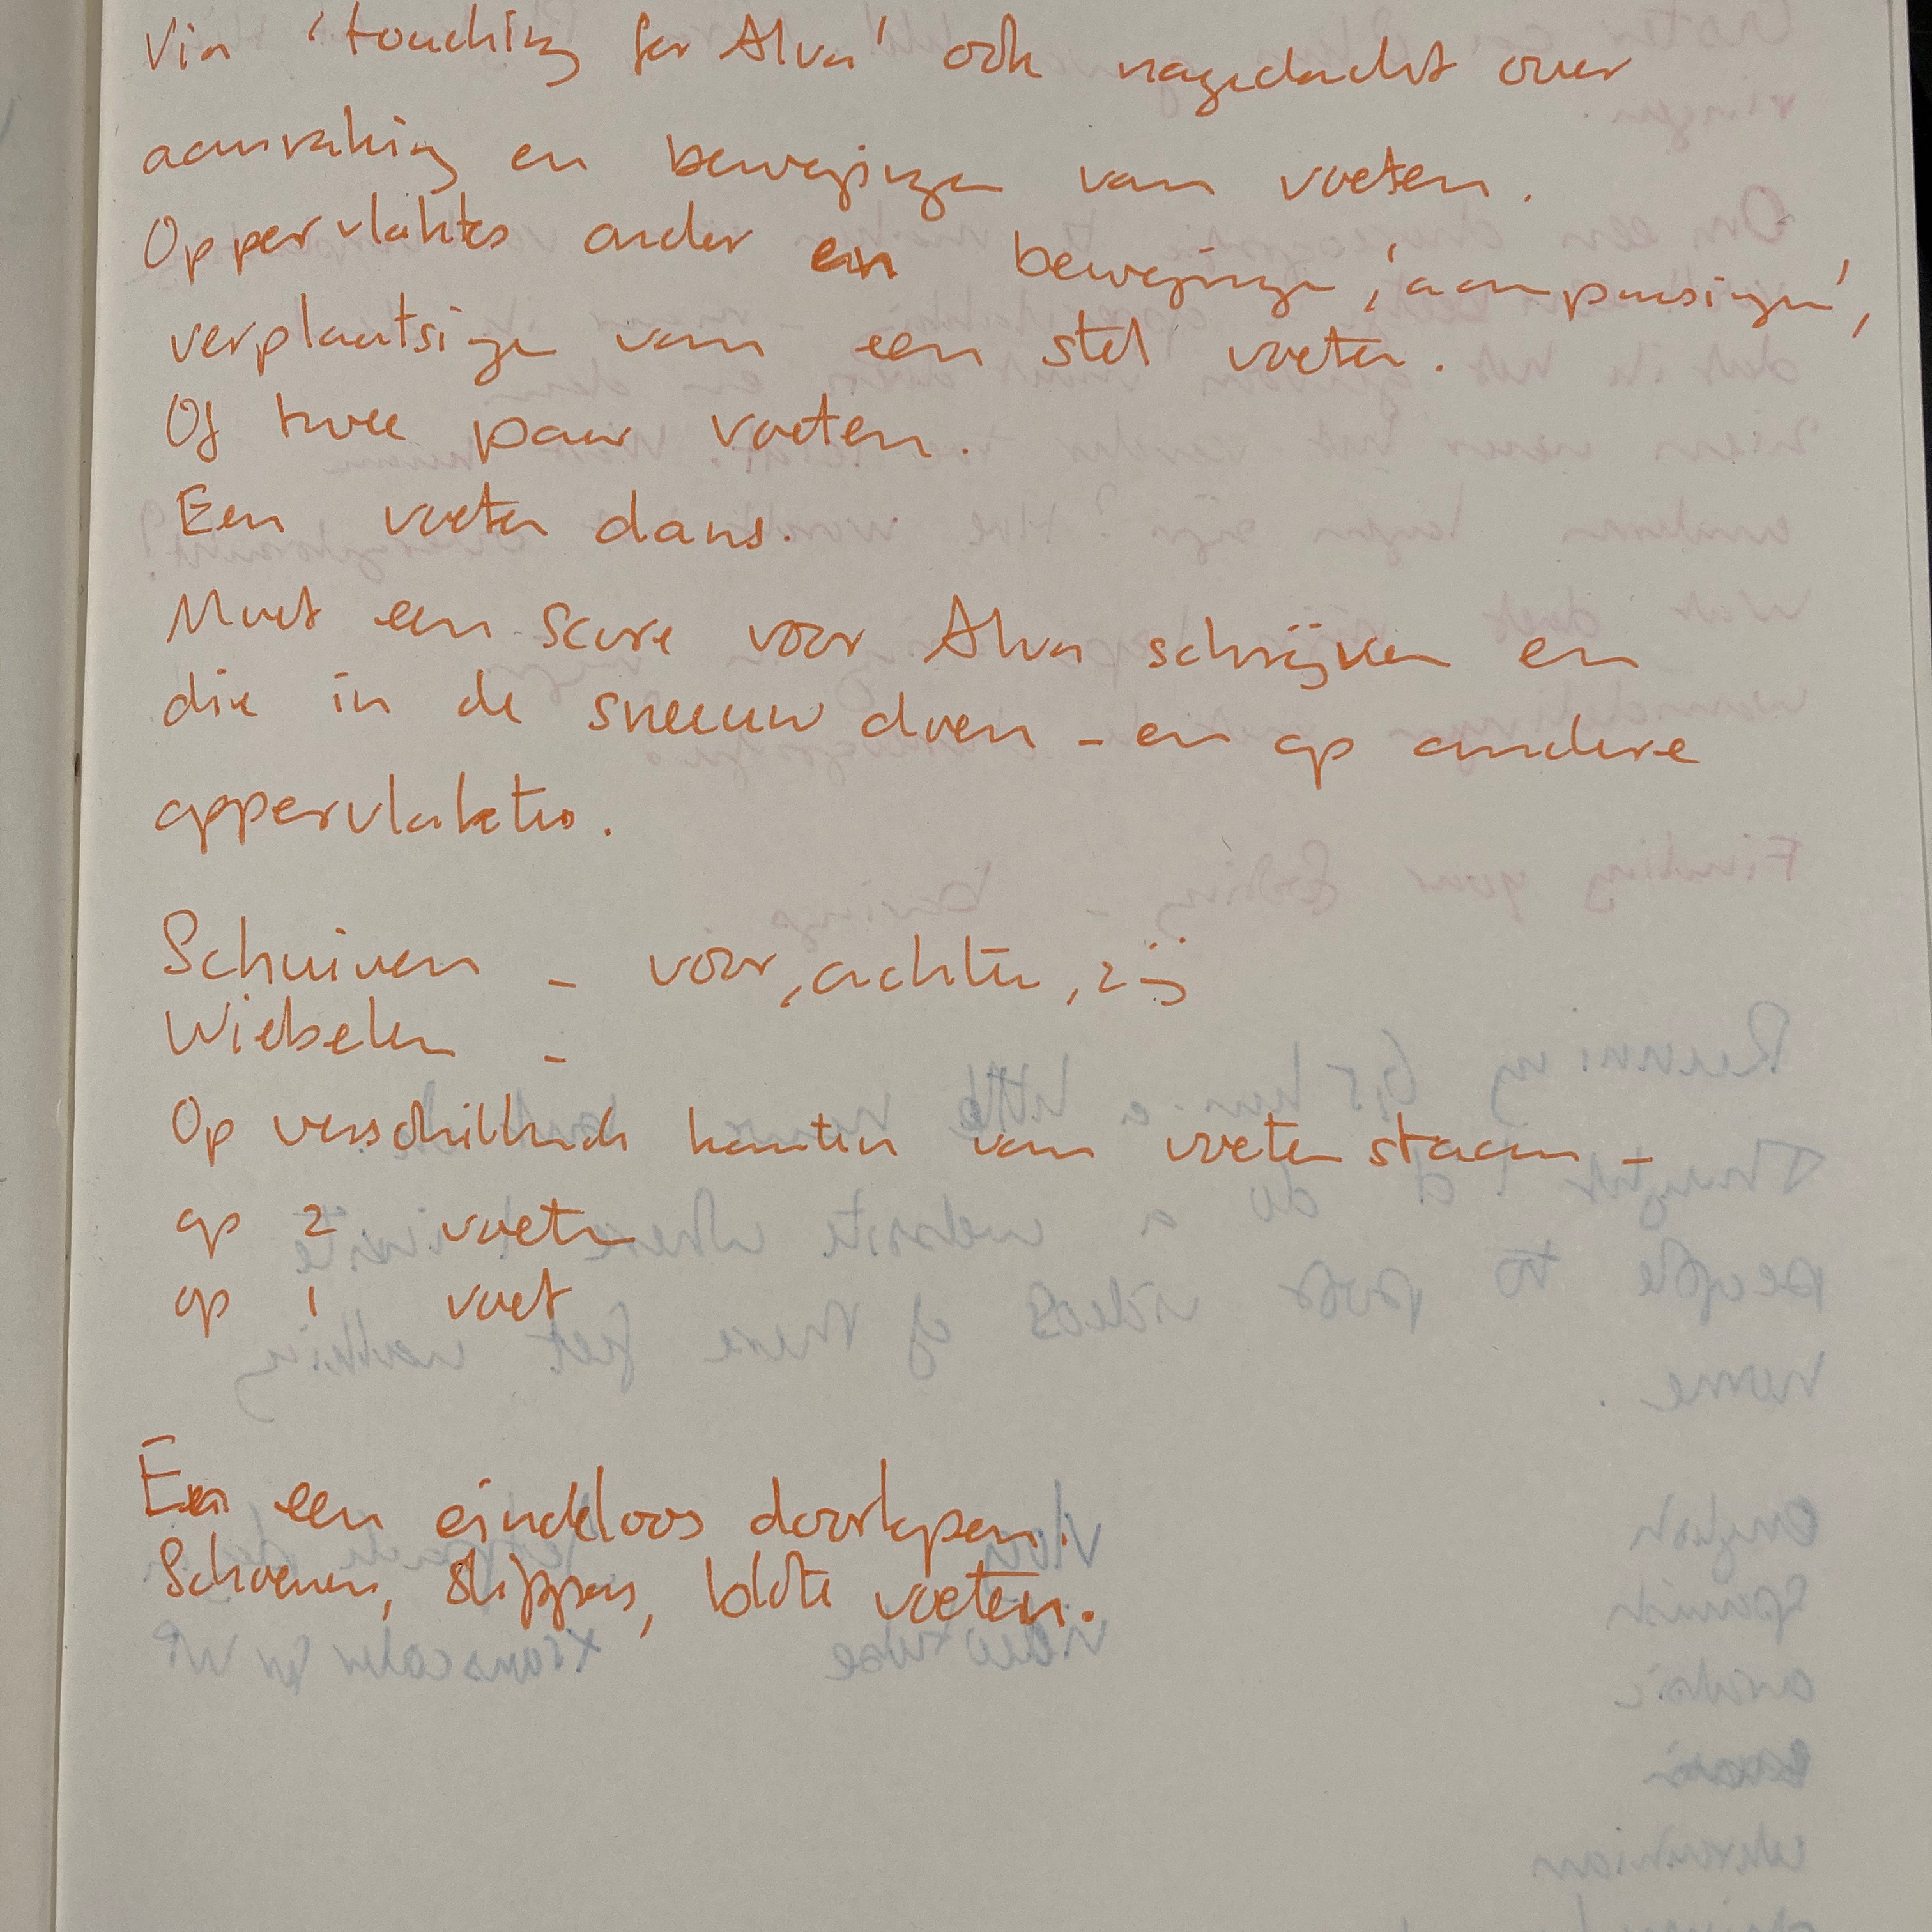 Via 'touching for Alva' ook nagedacht over
aanraking en bewegingen van voeten.
Oppervlaktes onder en bewegingen, 'aanpassingen',
verplaatsingen van een stel voeten.
Of twee paar voeten.
Een voeten dans.
Moet een score voor Alva schrijven en
die in de sneeuw doen - en op andere
oppervlaktes.
Schuiven - voor, achter, zij
Wiebelen -
Op verschillende kanten van voeten staan -
op 2 voeten
op 1 voet
En een eindeloos doorlopen.
Schoenen, slippers, blote voeten.